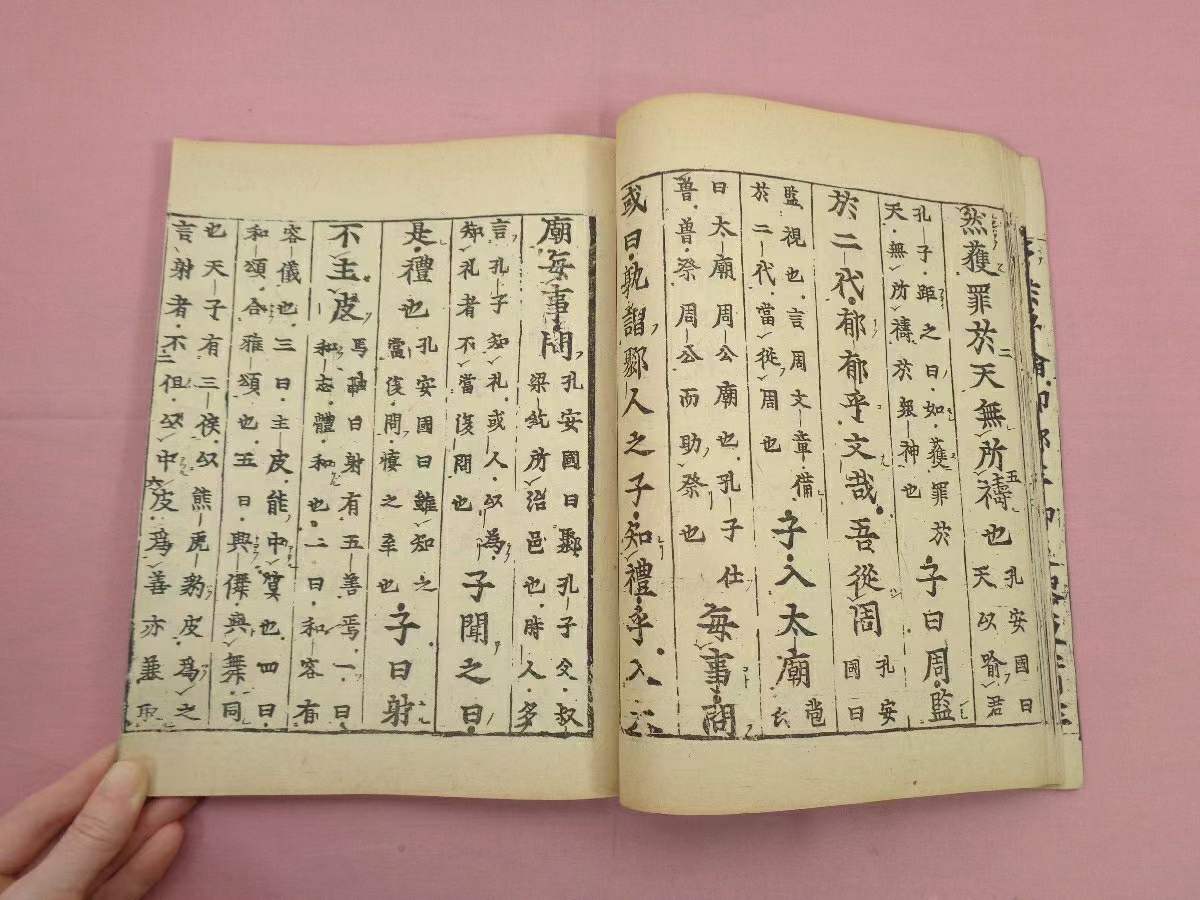 然獲罪於天無所禱也
孔安國曰
天以喩君
孔子距之曰如獲罪於
天無所禱於衆神也
子曰周監
於二代郁郁乎文哉吾從周
孔安
國曰
監視也言周文章備
於二代當從周也
子入太廟
苞
氏
曰太廟周公廟也孔子仕
魯魯祭周公而助祭也
每事問
或曰孰謂鄹人之子知禮乎入大
廟每事問
孔安國曰鄹孔子父叔
梁紇所治邑也時人多
言孔子知礼或人以為
知礼者不當復問也
子聞之曰
是禮也
孔安國曰雖知之
當復問慎之至也
子曰射
不主皮
馬融曰射有五善焉一曰
和志體和也二曰和容有
容儀也三曰主皮能中質也四曰
和頌合雅頌也五曰興儛與舞同
也天子有三侯以熊虎豹皮為之
言射者不但以中皮為善亦兼取